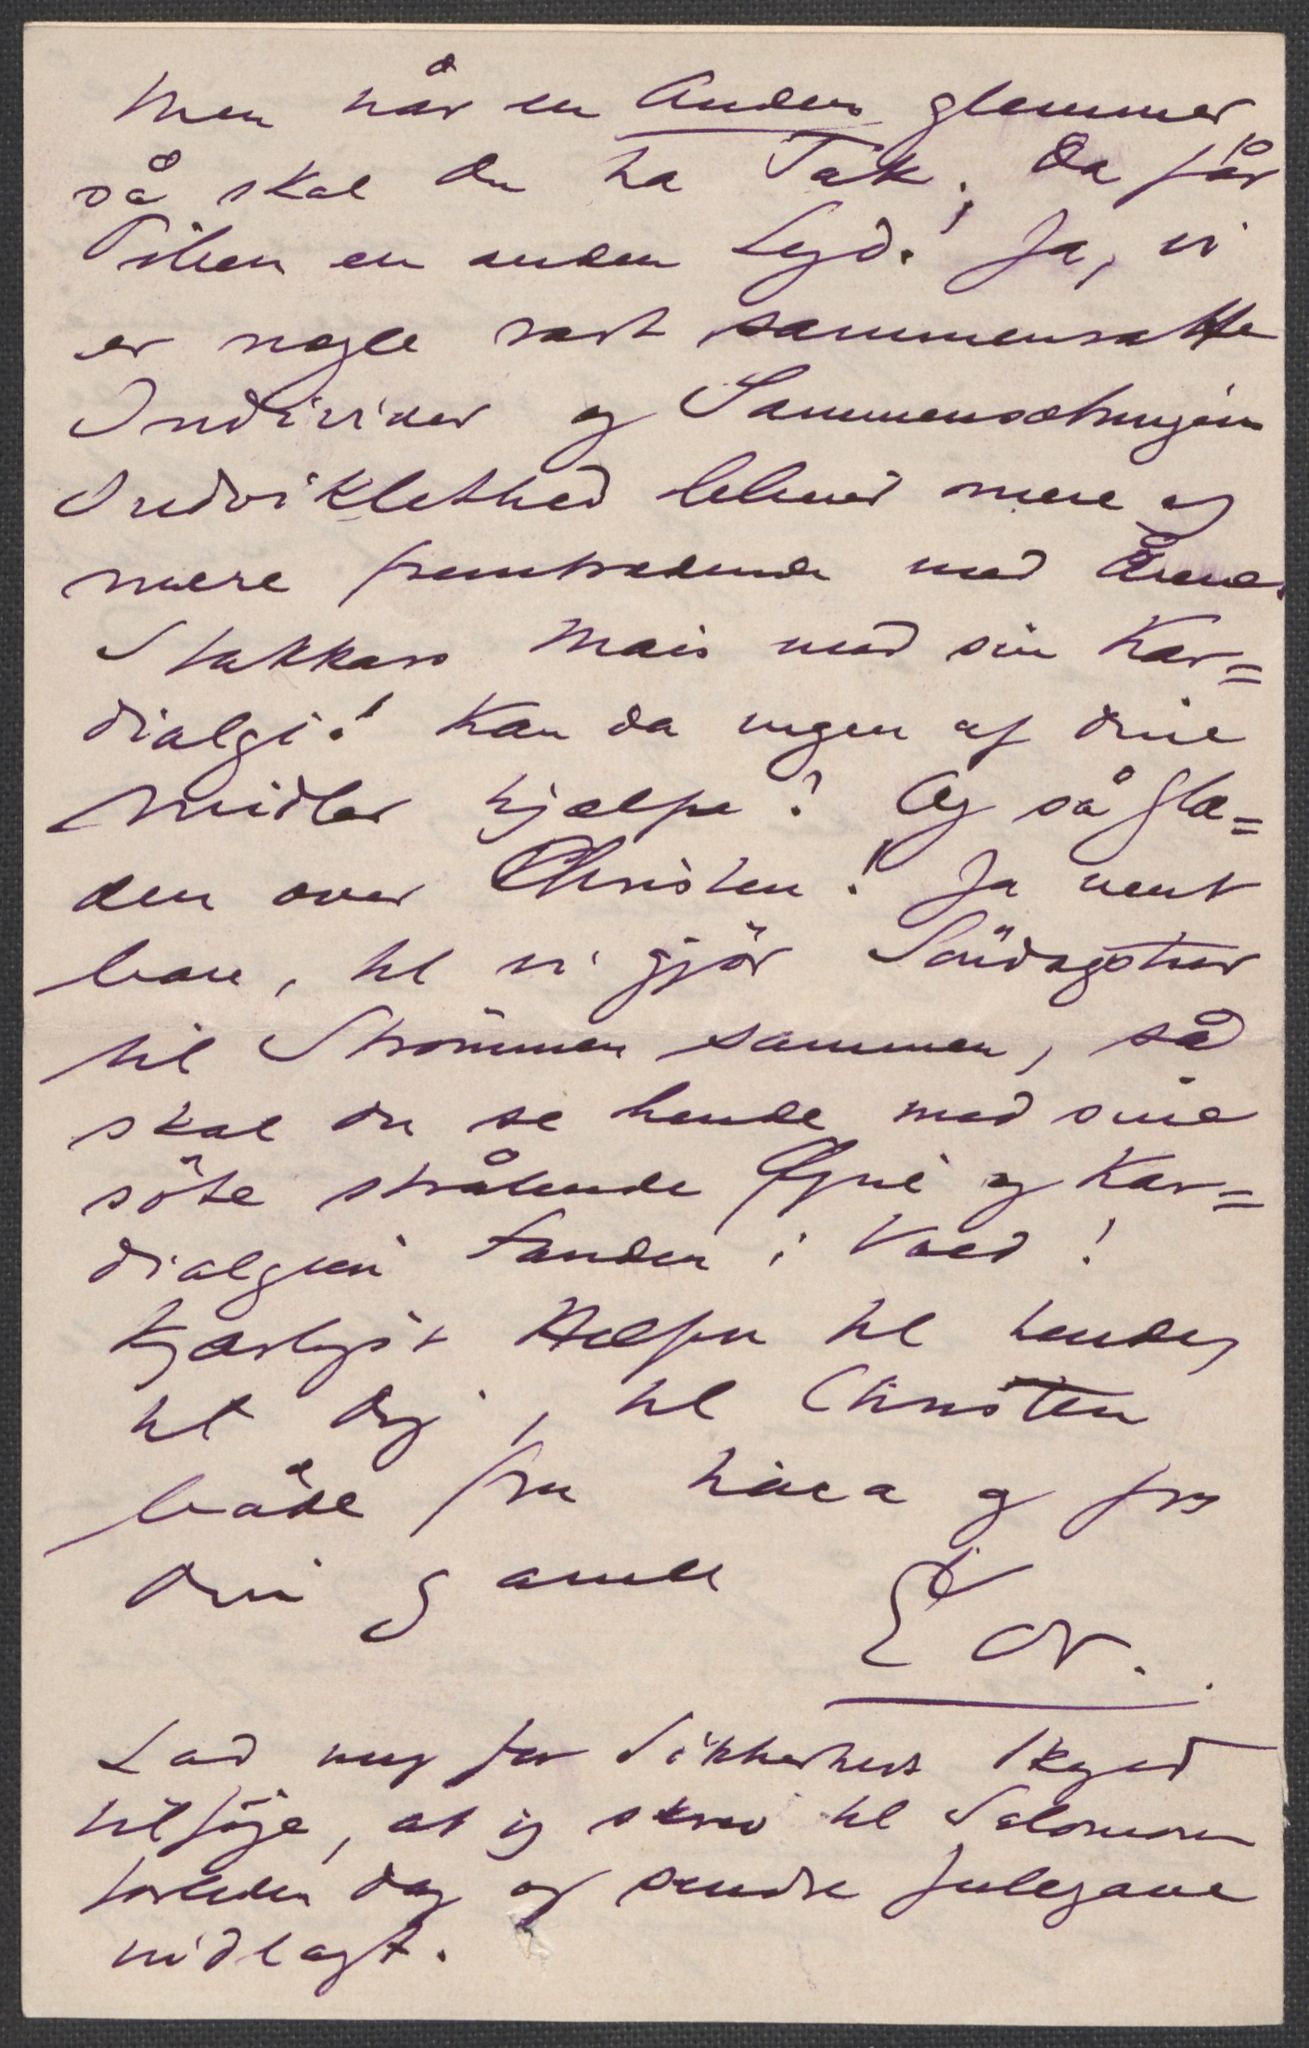 Men når en Anden glemmer
så skal du ha Tak. Da får
Piben en anden Lyd! Ja, vi
er nogle rart sammensatte
Individer og Sammensætningens
Indviklethed blever mere og
mere fremtrædende med Årene.
Stakkars Mais med sin Kar=
dialgi! Kan da ingen af dine
Midler hjælpe? Og så Glæ=
den over Christen! Ja vent
bare, til vi gjör Söndagsture
til Strömmen sammen, så
skal du se hende med sine
söte strålende Øjne og Kar=
dialgien Fanden i Vold!
Kjærligst Hilsen til hende,
til dig, til Christen
både fra Nina og fra
din gamle
Edv.
Lad mig for Sikkerheds Skyld
tilföje, at jeg skrev til Salomon
forleden dag og sendte Julegave
vidlagt.